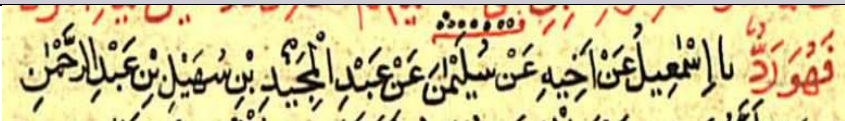 فَهُوَ رَدٌّ نا اِسْمٰعِيلُ عَنْ اَخِيهِ عَنْ سُلَيْمٰنَ عَنْ عَبْدِ الْمَجِيدِ بْنِ سُهَيْلِ بْنِ عَبْدِ الرَّحْمٰنِ